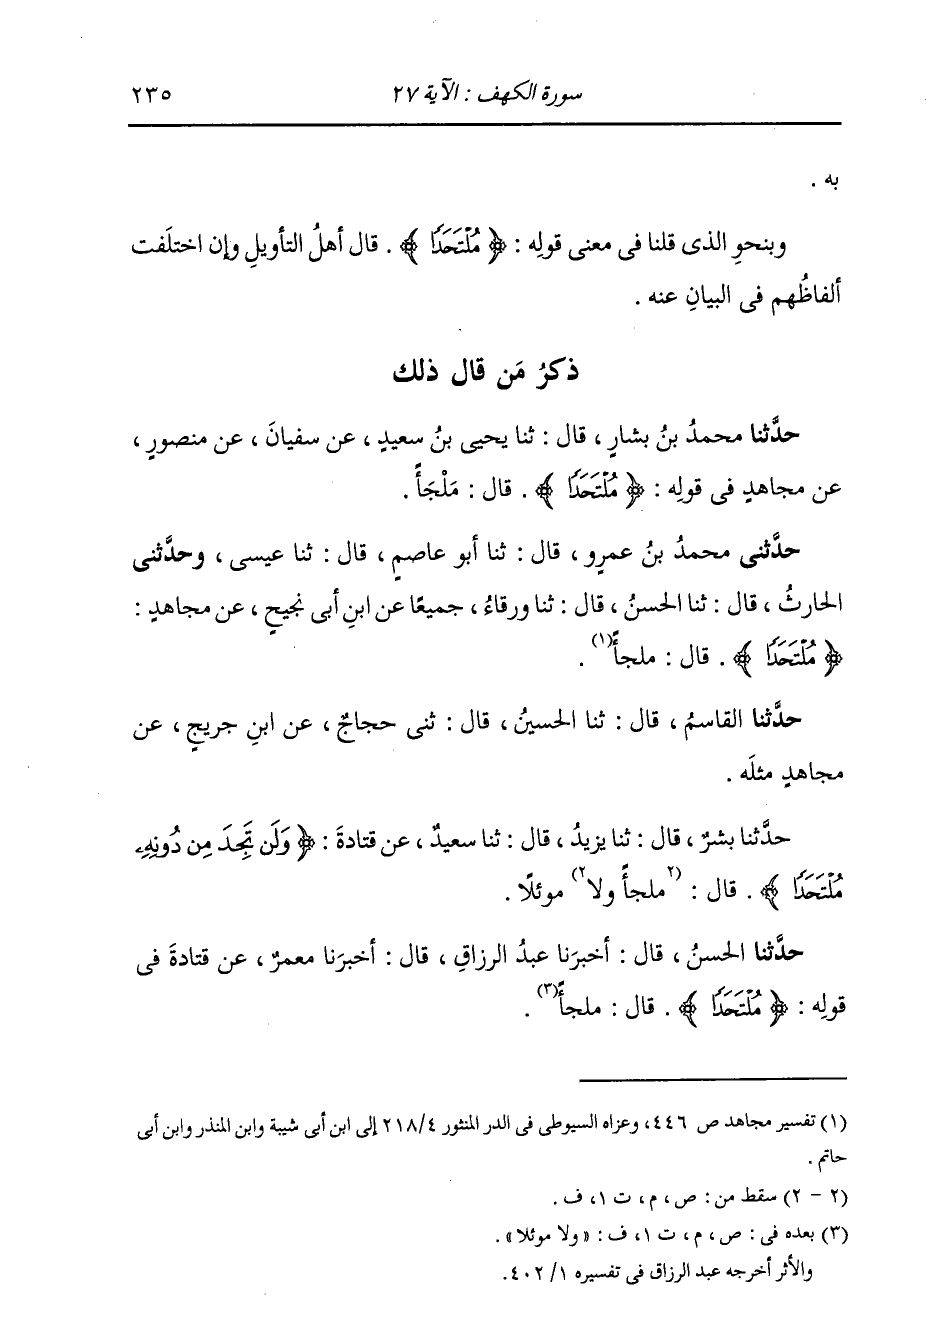 سورة الكهف : الآية ٢٧ ٢٣٥
به .
وبنحوِ الذى قلنا فى معنى قولِه : ﴿ مُلْتَحَدًا ﴾ . قال أهلُ التأويلِ وإن اختلَفت
ألفاظُهم فى البيانِ عنه .
ذكرُ مَن قال ذلك
حدَّثنا محمدُ بنُ بشارٍ ، قال : ثنا يحيى بنُ سعيدٍ ، عن سفيانَ ، عن منصورٍ ،
عن مجاهدٍ فى قولِه : ﴿ مُلْتَحَدًا ﴾ . قال : مَلْجَأً .
حدَّثنى محمدُ بنُ عمرٍو ، قال : ثنا أبو عاصمٍ ، قال : ثنا عيسى ، وحدَّثنى
الحارثُ ، قال : ثنا الحسنُ ، قال : ثنا ورقاءُ ، جميعًا عن ابنِ أبى نجيحٍ ، عن مجاهدٍ :
﴿ مُلْتَحَدًا ﴾ . قال : ملجأً(١) .
حدَّثنا القاسمُ ، قال : ثنا الحسينُ ، قال : ثنى حجاجٌ ، عن ابنِ جريجٍ ، عن
مجاهدٍ مثلَه .
حدَّثنا بشرٌ ، قال : ثنا يزيدُ ، قال : ثنا سعيدٌ ، عن قتادةَ : ﴿ وَلَن تَجِدَ مِن دُونِهِۦ
مُلْتَحَدًا ﴾ . قال : (٢ملجأً ولا٢) موئلًا .
حدَّثنا الحسنُ ، قال : أخبرَنا عبدُ الرزاقِ ، قال : أخبرَنا معمرٌ ، عن قتادةَ فى
قولِه : ﴿ مُلْتَحَدًا ﴾ . قال : ملجأً(٣) .
(١) تفسير مجاهد ص ٤٤٦، وعزاه السيوطى فى الدر المنثور ٢١٨/٤ إلى ابن أبى شيبة وابن المنذر وابن أبى
حاتم .
(٢ - ٢) سقط من : ص ، م ، ت ١، ف .
(٣) بعده فى : ص ، م ، ت ١، ف : «ولا موئلا» .
والأثر أخرجه عبد الرزاق فى تفسيره ١/ ٤٠٢.